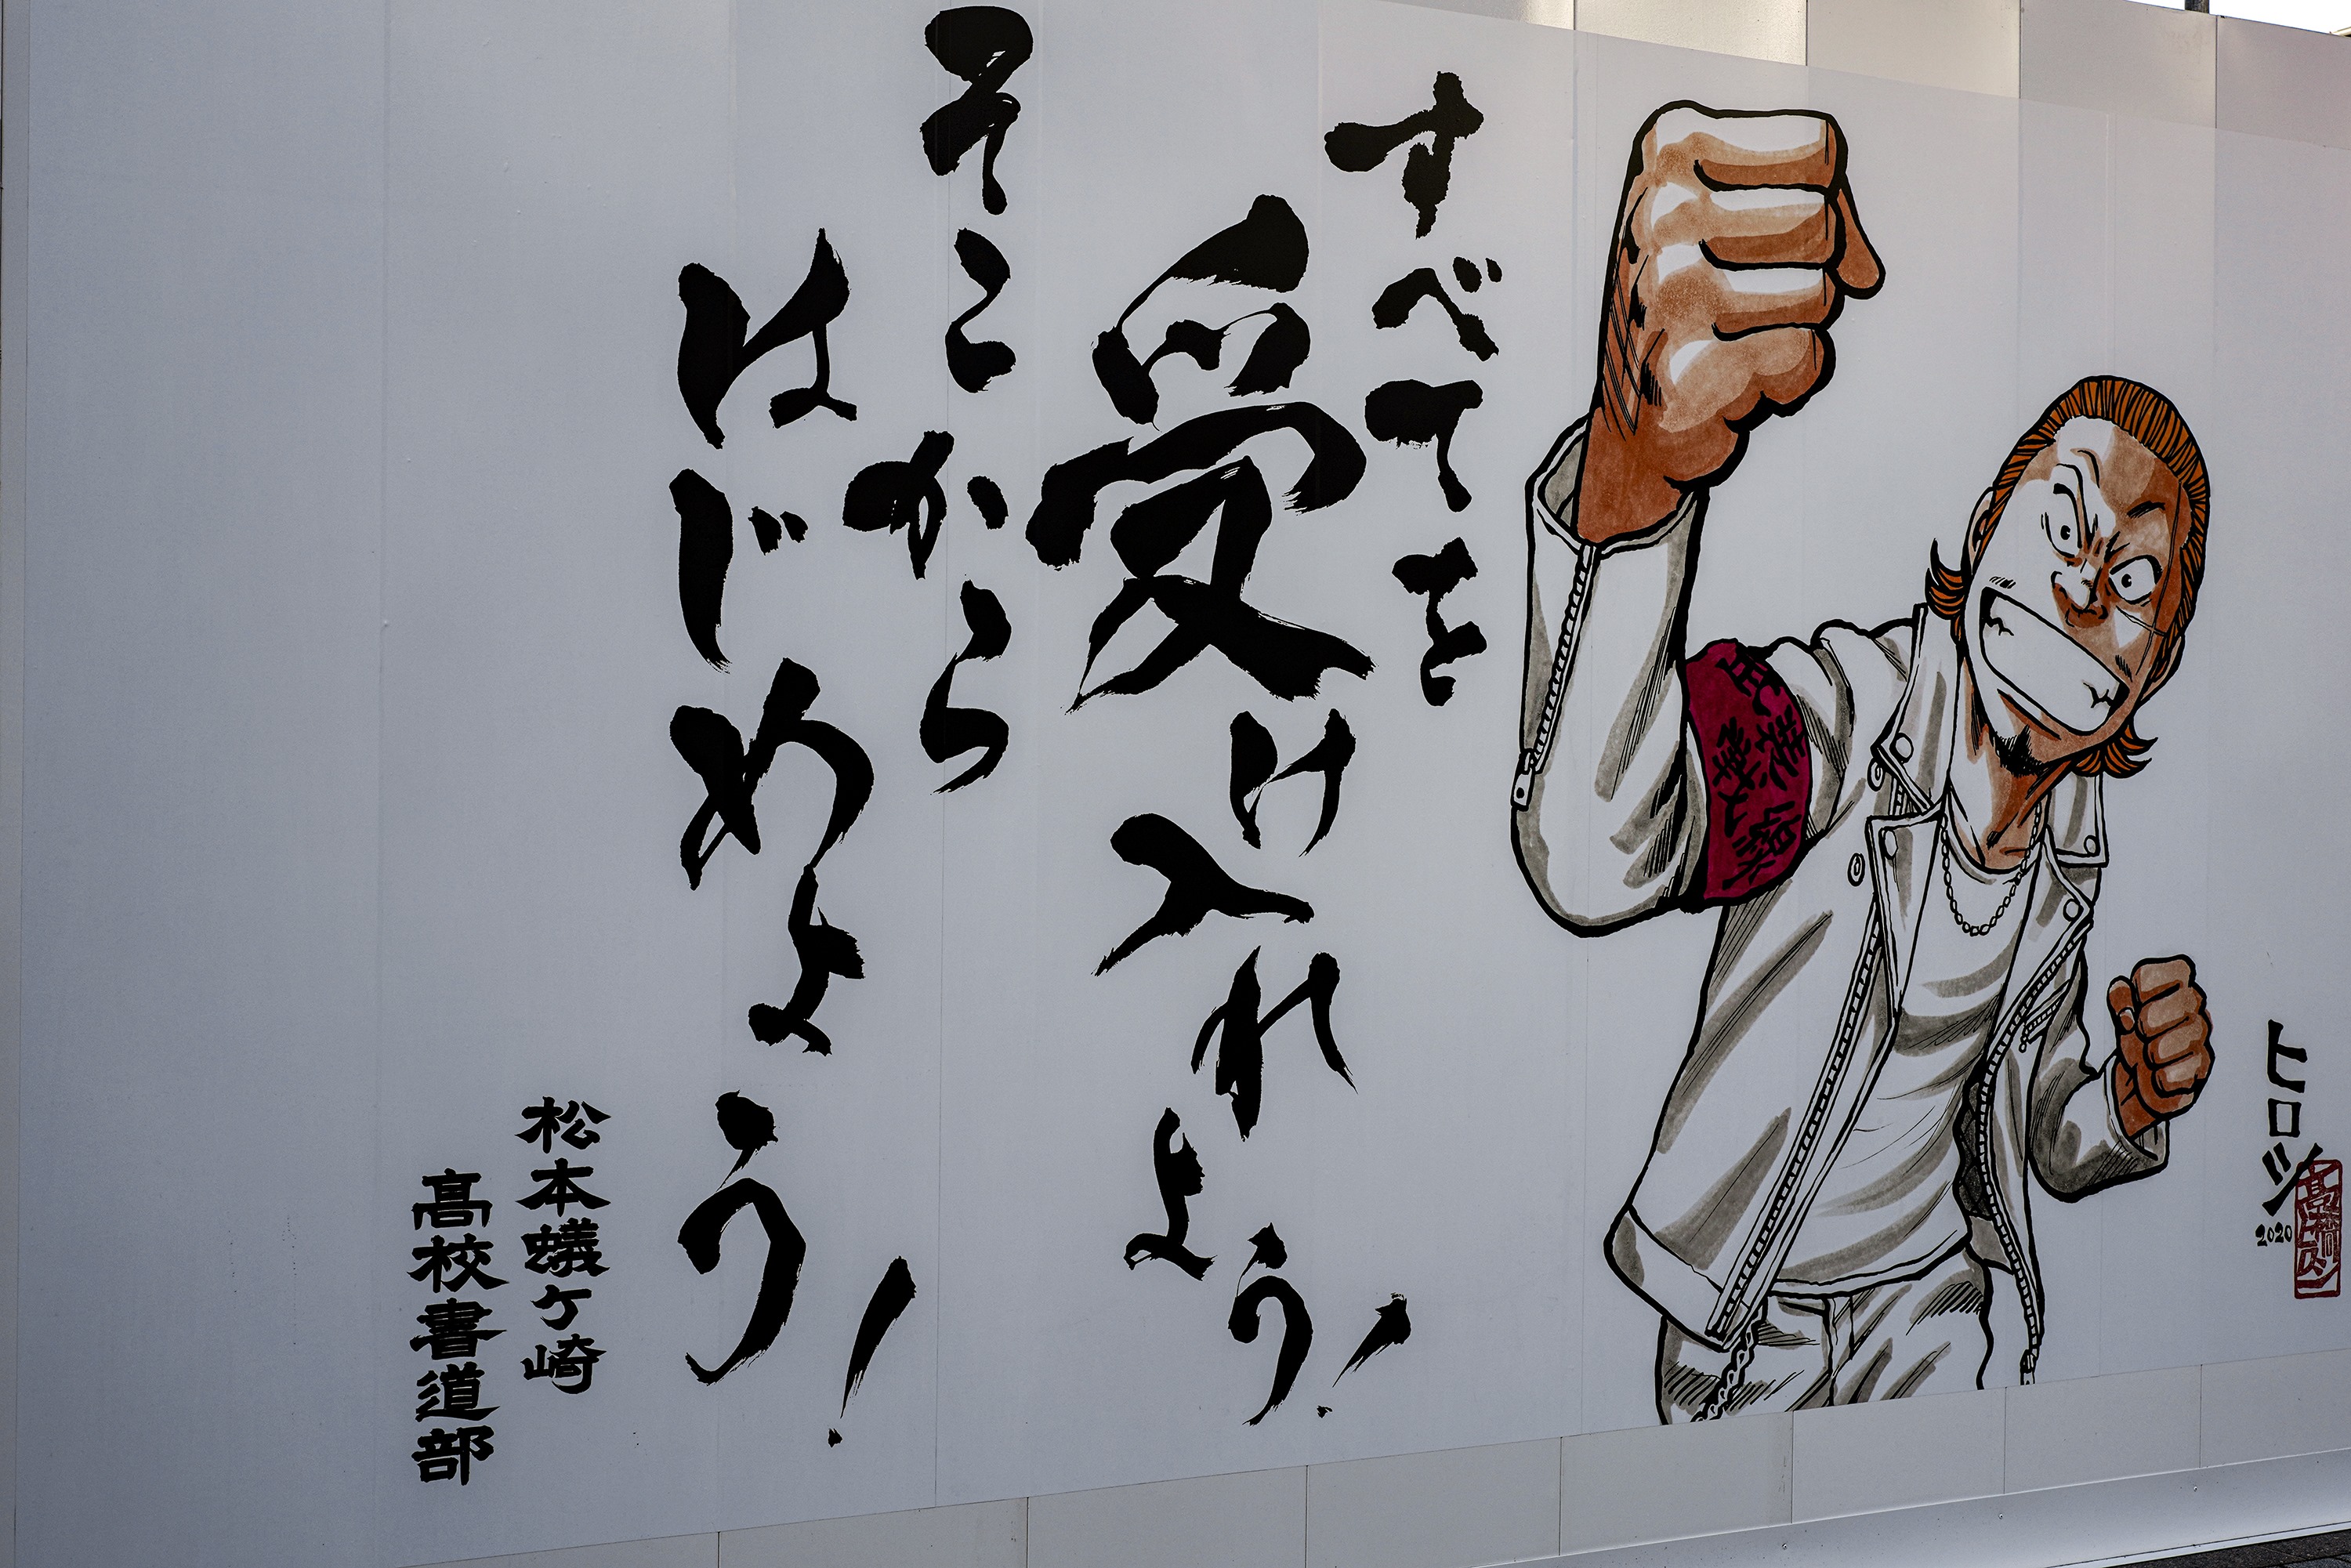 すべてを
受け入れよう!
そこから
はじめよう!
松本蟻ヶ崎
高校書道部
武装戦線
ヒロシ
2020